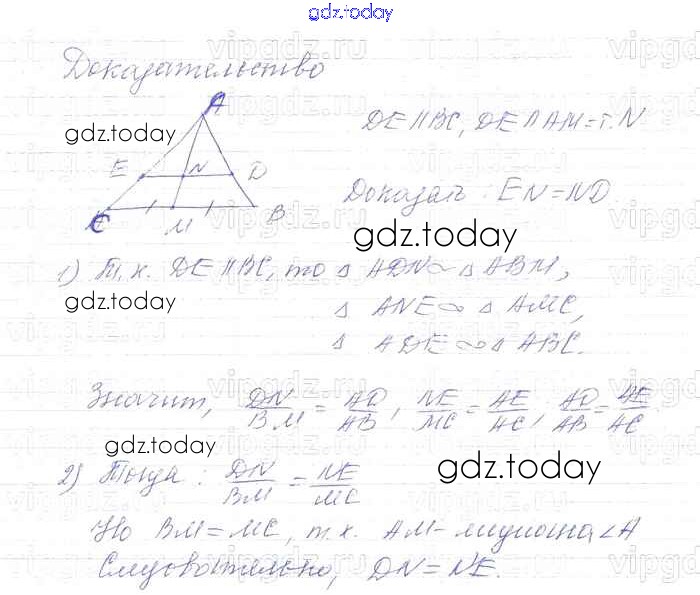 gdz.today
Доказательство
A
DE ∥ BC, DE ∩ AM = т. N
gdz.today
E N D
Доказать: EN = ND.
C M B
gdz.today
1) Т.к. DE ∥ BC, то △ ADN ∾ △ ABM,
gdz.today
△ ANE ∾ △ AMC,
△ ADE ∾ △ ABC.
Значит, DN/BM = AD/AB, NE/MC = AE/AC, AD/AB = AE/AC
gdz.today
gdz.today
2) Тогда: DN/BM = NE/MC
Но BM = MC, т.к. AM - медиана ∠A
Следовательно, DN = NE.
vipgdz.ru